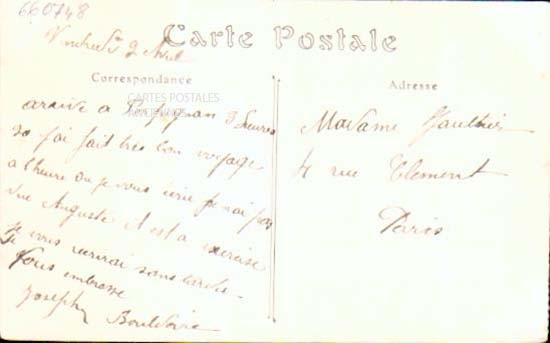 660748
Vendredi 9 Avril
Carte Postale
Correspondance
Adresse
CARTES POSTALES
ANCIENNES
arrivé a Perpignan 9 heures
30 j'ai fait très bon voyage
a l'heure ou je vous écrie je nai pas
vue Auguste il est a exercise
je vous écrirai sans tarder
Vous embrasse
Joseph
Madame Gauthier
4 rue Clement
Paris